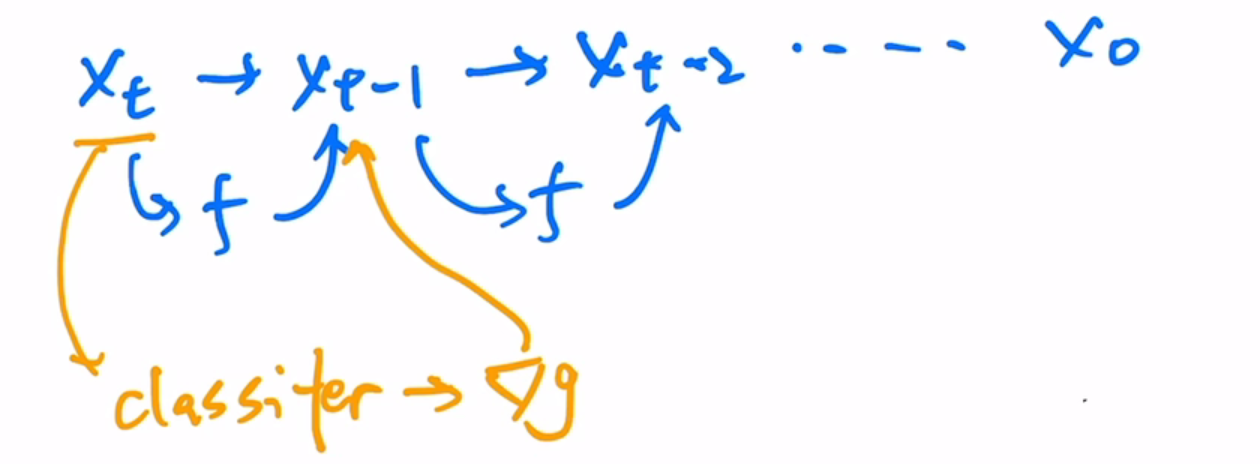 Xt → Xt-1 → Xt-2 ..--- X0
f f
classifer → ∇g